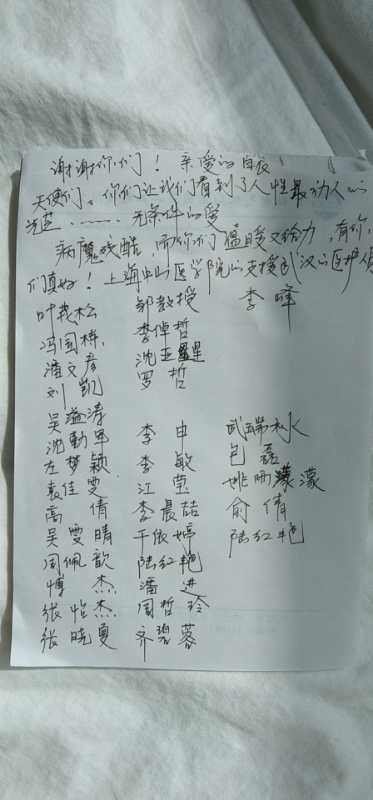 谢谢你们！亲爱的白衣
天使们。你们让我们看到了人性最动人的
光芒……无条件的爱
病魔残酷，而你们温暖又给力，有你
们真好！上海中山医学院的支援武汉的医护人
叶茂松 邹教授 李峰
冯国栋 李倬哲
潘文彦 沈亚星
刘凯 罗哲
吴溢涛
沈勤军 李申 武瑞
左梦颖 李敏 包磊
袁佳雯 江莹 姚雨濛
高倩 李晨喆 俞倩
吴雯晴 于依婷 陆红艳
周佩歆 陆红艳
傅杰 潘进
张怡杰 周哲玲
张晓夏 齐碧蓉